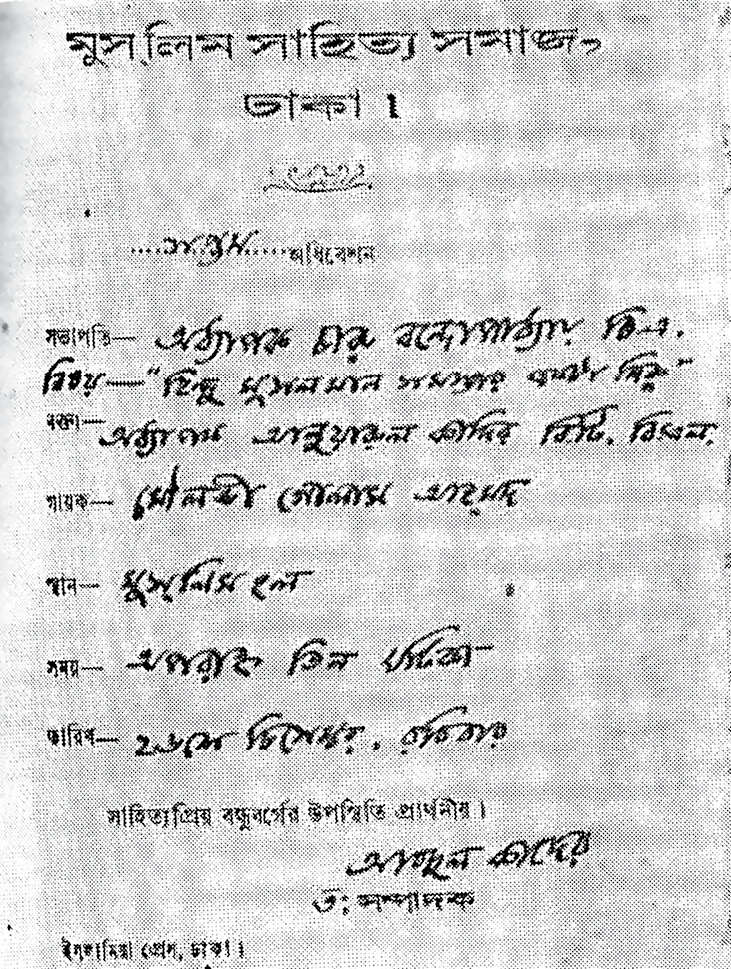 মুসলিম সাহিত্য সমাজ,
ঢাকা।
অধিবেশন
সভাপতি— অধ্যাপক চারু বন্দ্যোপাধ্যায় বি.এ.
বিষয়—"হিন্দু মুসলমান সমস্যার
বক্তা— অধ্যাপক আনুয়ারুল কাদির বিটি.
গায়ক— মৌলভী গোলাম আহমদ
স্থান— মুসলিম হল
সময়— অপরাহ্ন তিন ঘটিকা
তারিখ— ২৬শে ডিসেম্বর, রবিবার
সাহিত্যপ্রিয় বন্ধুবর্গের উপস্থিতি প্রার্থনীয়।
আবদুল কাদের
ত: সম্পাদক
ইসলামিয়া প্রেস, ঢাকা।